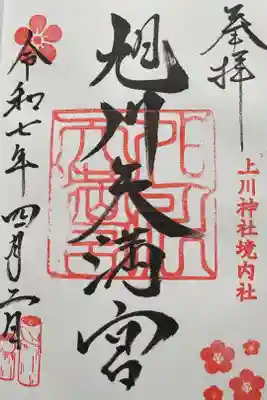 奉拝
上川神社境内社
旭川天満宮
令和七年四月二日